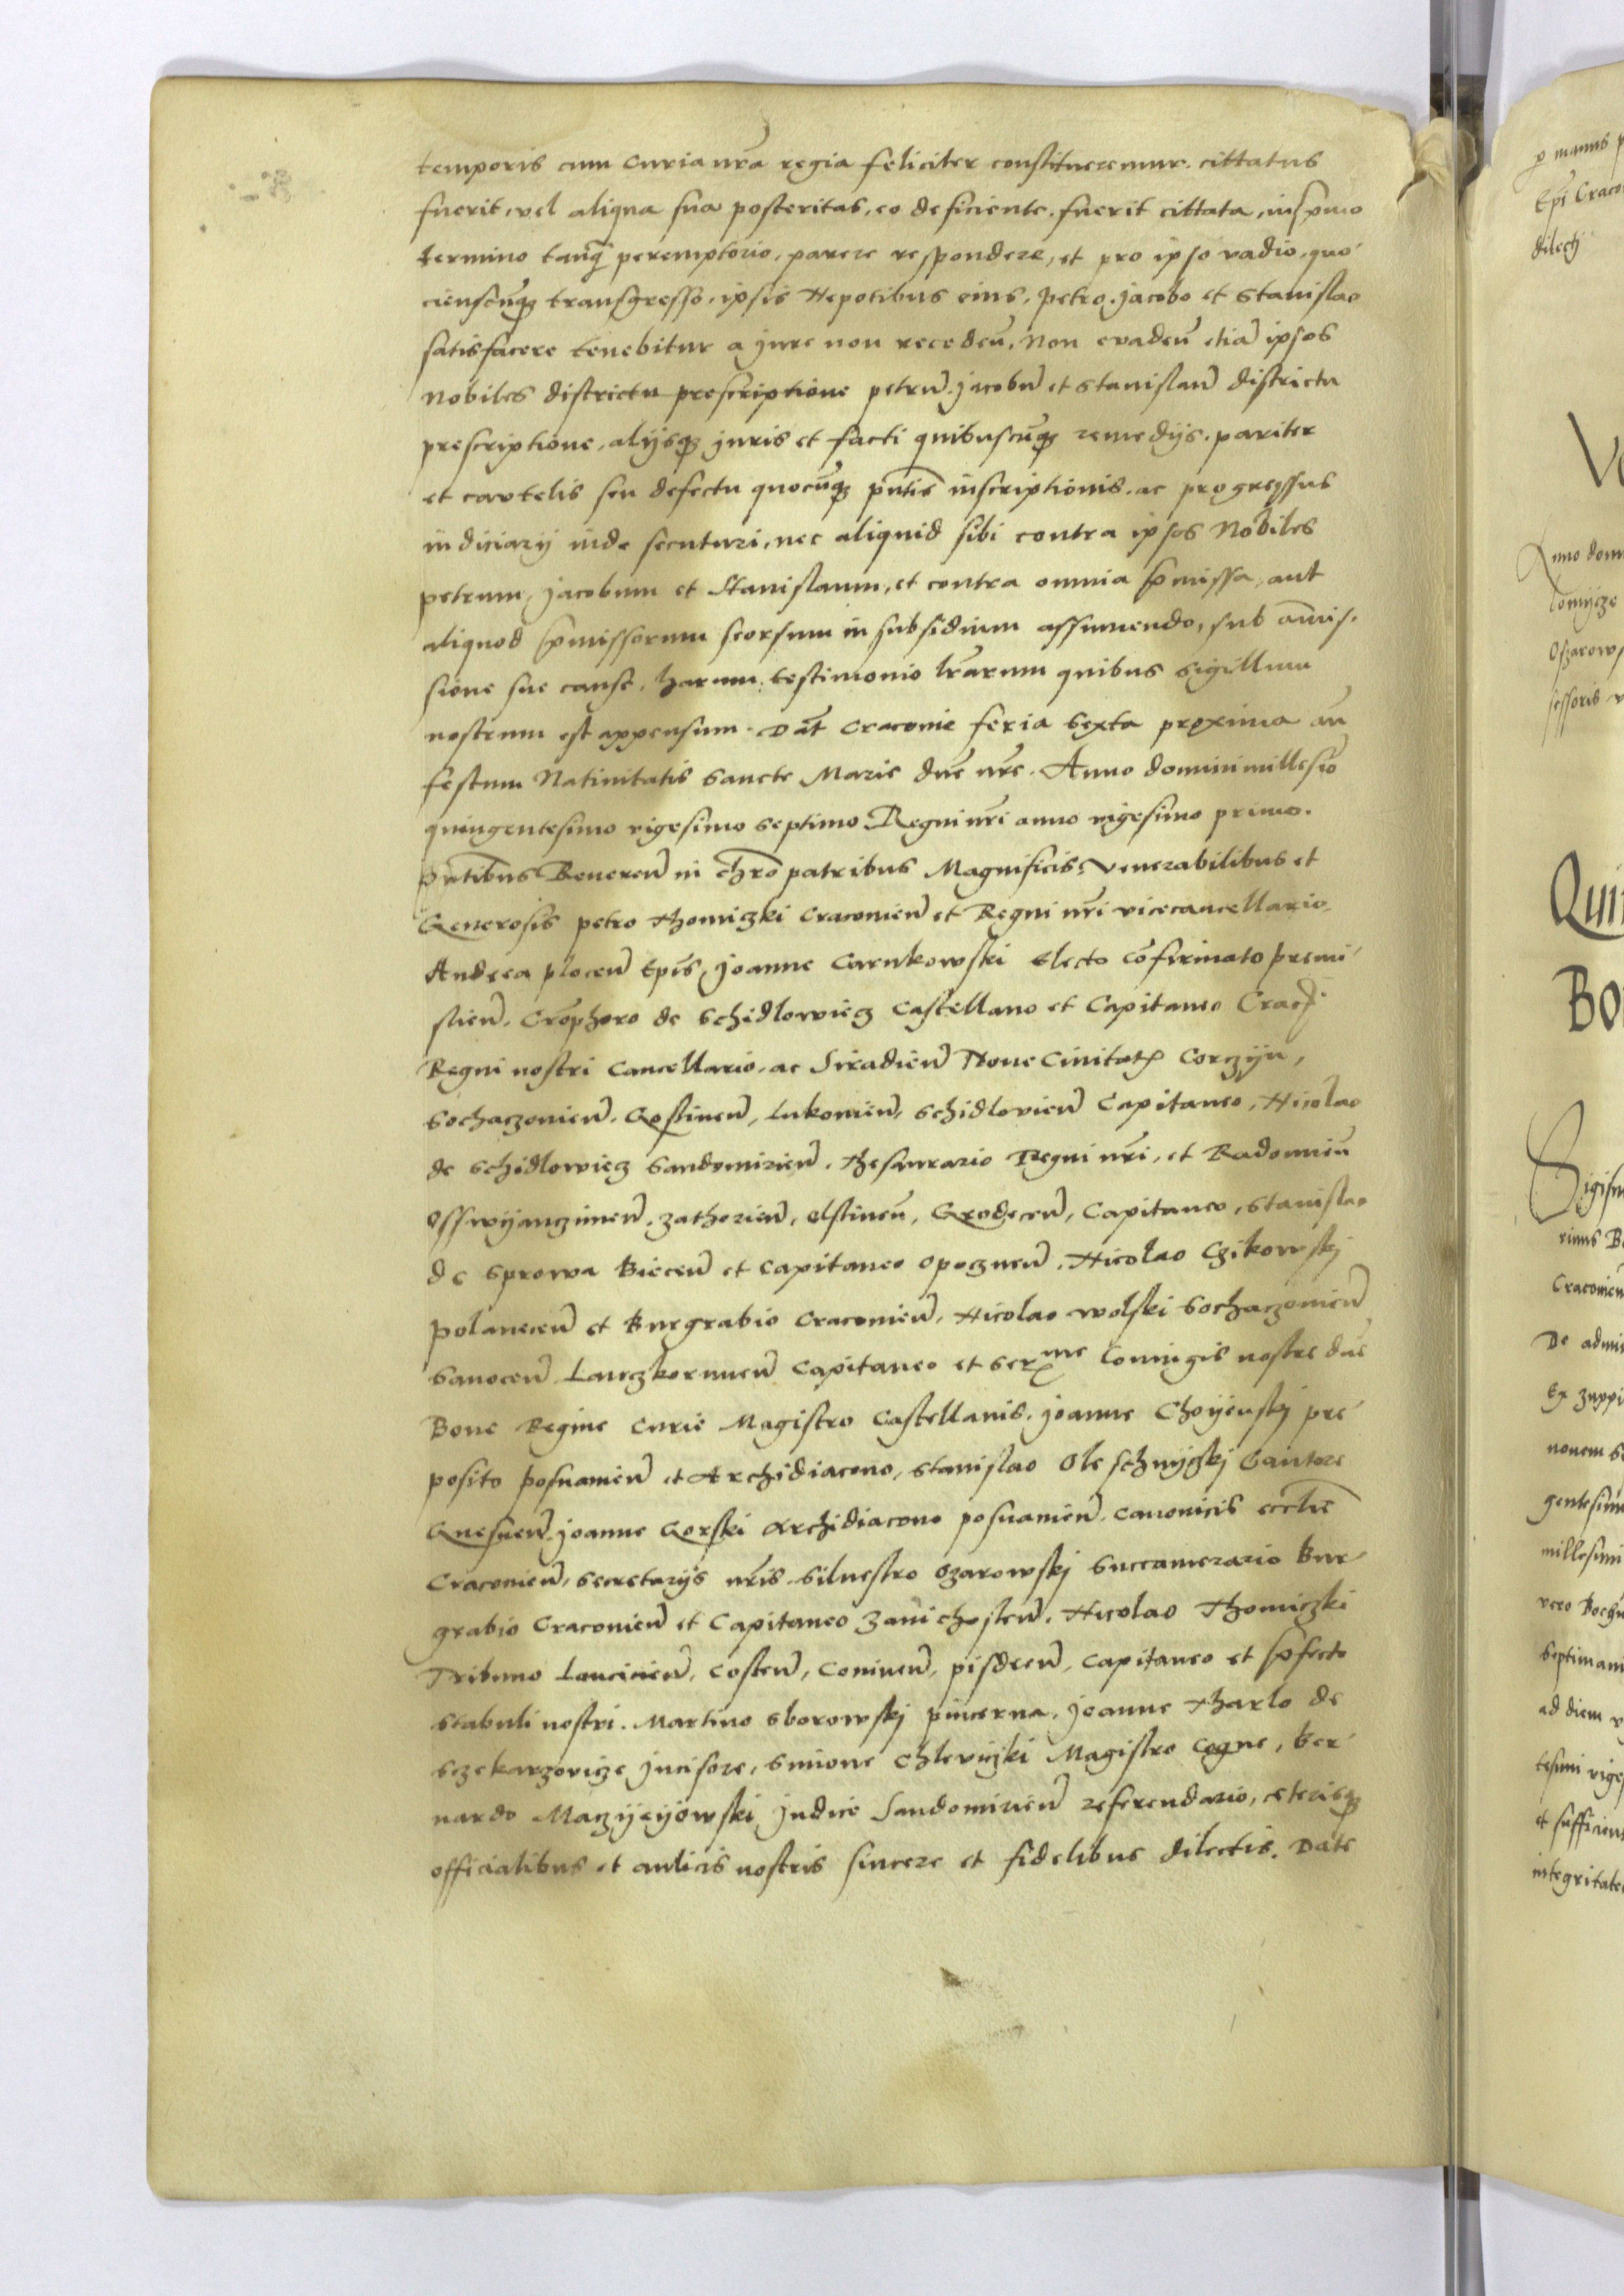 temporis cum Curia nr̃a regia feliciter constitueremur. cittatus
fuerit, vel aliqua sua posteritas, eo deficiente. fuerit cittata, in primo
termino tanq̃ peremptorio, parere respondere, et pro ipso vadio, quo-
cienscũq3 transgresso, ipsis Nepotibus eius, Petro. Jacobo et Stanislao
satisfacere tenebitur a jure non recedeñ. Non evadeñ etiã ipsos
Nobiles districtu prescriptione petrũ. Jacobũ et Stanislaũ districtu
prescriptione, alijsq3 juris et facti quibuscũq3 remedijs. pariter
et cavtelis seu defectu quocũq3 pñtis inscriptionis. ac progressus
iudiciarij inde secuturi, nec aliquid sibi contra ipsos Nobiles
petrum, Jacobum et Stanislaum, et contra omnia p̃missa, aut
aliquod p̃missorum seorsum in subsidium assumendo, sub amis-
sione sue cause. harum testimonio lr̃arum quibus sigillum
nostrum est appensum. Dat̃ Cracovie feria sexta proxima añ
festum Nativitatis Sancte Marie dñe nr̃e. Anno domini millesiõ
quingentesimo vigesimo septimo Regni nr̃i anno vigesimo primo.
Pñtibus Revereñ in chr̃o patribus Magnificis, venerabilibus et
Generosis petro Thomiczki Cracovieñ et Regni nr̃i vicecancellario
Andrea ploceñ Ep̃is, Joanne Carnkowski Electo cõfirmato premi-
slieñ. Cr̃ophoro de Schidlowiecz Castellano et Capitaneo Crac̃.
Regni nostri Cancellario, ac Siradieñ Nove Civitatis Corczijn,
Sochaczovieñ. Gostineñ, Lukovieñ, Schidlovieñ Capitaneo, Nicolao
de Schidlowiecz Sandomirieñ. Thesaurario Regni nr̃i, et Radomieñ
Osswyanczimeñ. Zathorieñ, Olstineñ, Grodeceñ, Capitaneo, Stanislao
de Sprowa Bieceñ et Capitaneo Opoczneñ. Nicolao Czikowskj
Polaneceñ et Burgrabio Cracovieñ, Nicolao Wolski Sochaczovieñ
Sanoceñ Lanczkoruneñ Capitaneo et Serme Coniugis nostre dñe
Bone Regine Curie Magistro Castellanis. Joanne Choijenskj pre-
posito Posnanieñ et Archidiacono, Stanislao Oleschnyczkj Cantore
Gnesneñ. Joanne Gorski Archidiacono posnanieñ. Canonicis eccl̃ie
Cracovieñ, Secretarijs nr̃is. Silvestro Ozarowskj Succamerario Bur-
grabio Cracovieñ et Capitaneo Zavichosteñ, Nicolao Thomiczki
Tribuno Lancicieñ, Costeñ, Conineñ, pisdreñ, Capitaneo et p̃fecto
stabuli nostri. Martino Sborowskj pincerna, Joanne Tharlo de
Sczekarzovicze Jncisore, Simone Chlevicki Magistro Coqne, Ber-
nardo Maczijeijowski Judice Sandomirieñ referendario, ceterisq3
officialibus et aulicis nostris sincere et fidelibus dilectis. Date
p manus
Ep̃i Craco
dilecti
Anno dom
Ozarows
Qui
Bo
Sigism
Cracovieñ
De admis
Ex zuppi
novem
gentesim
millesimi
vero Boch
Septimani
ad diem
tesimi vige
et sufficient
integritate